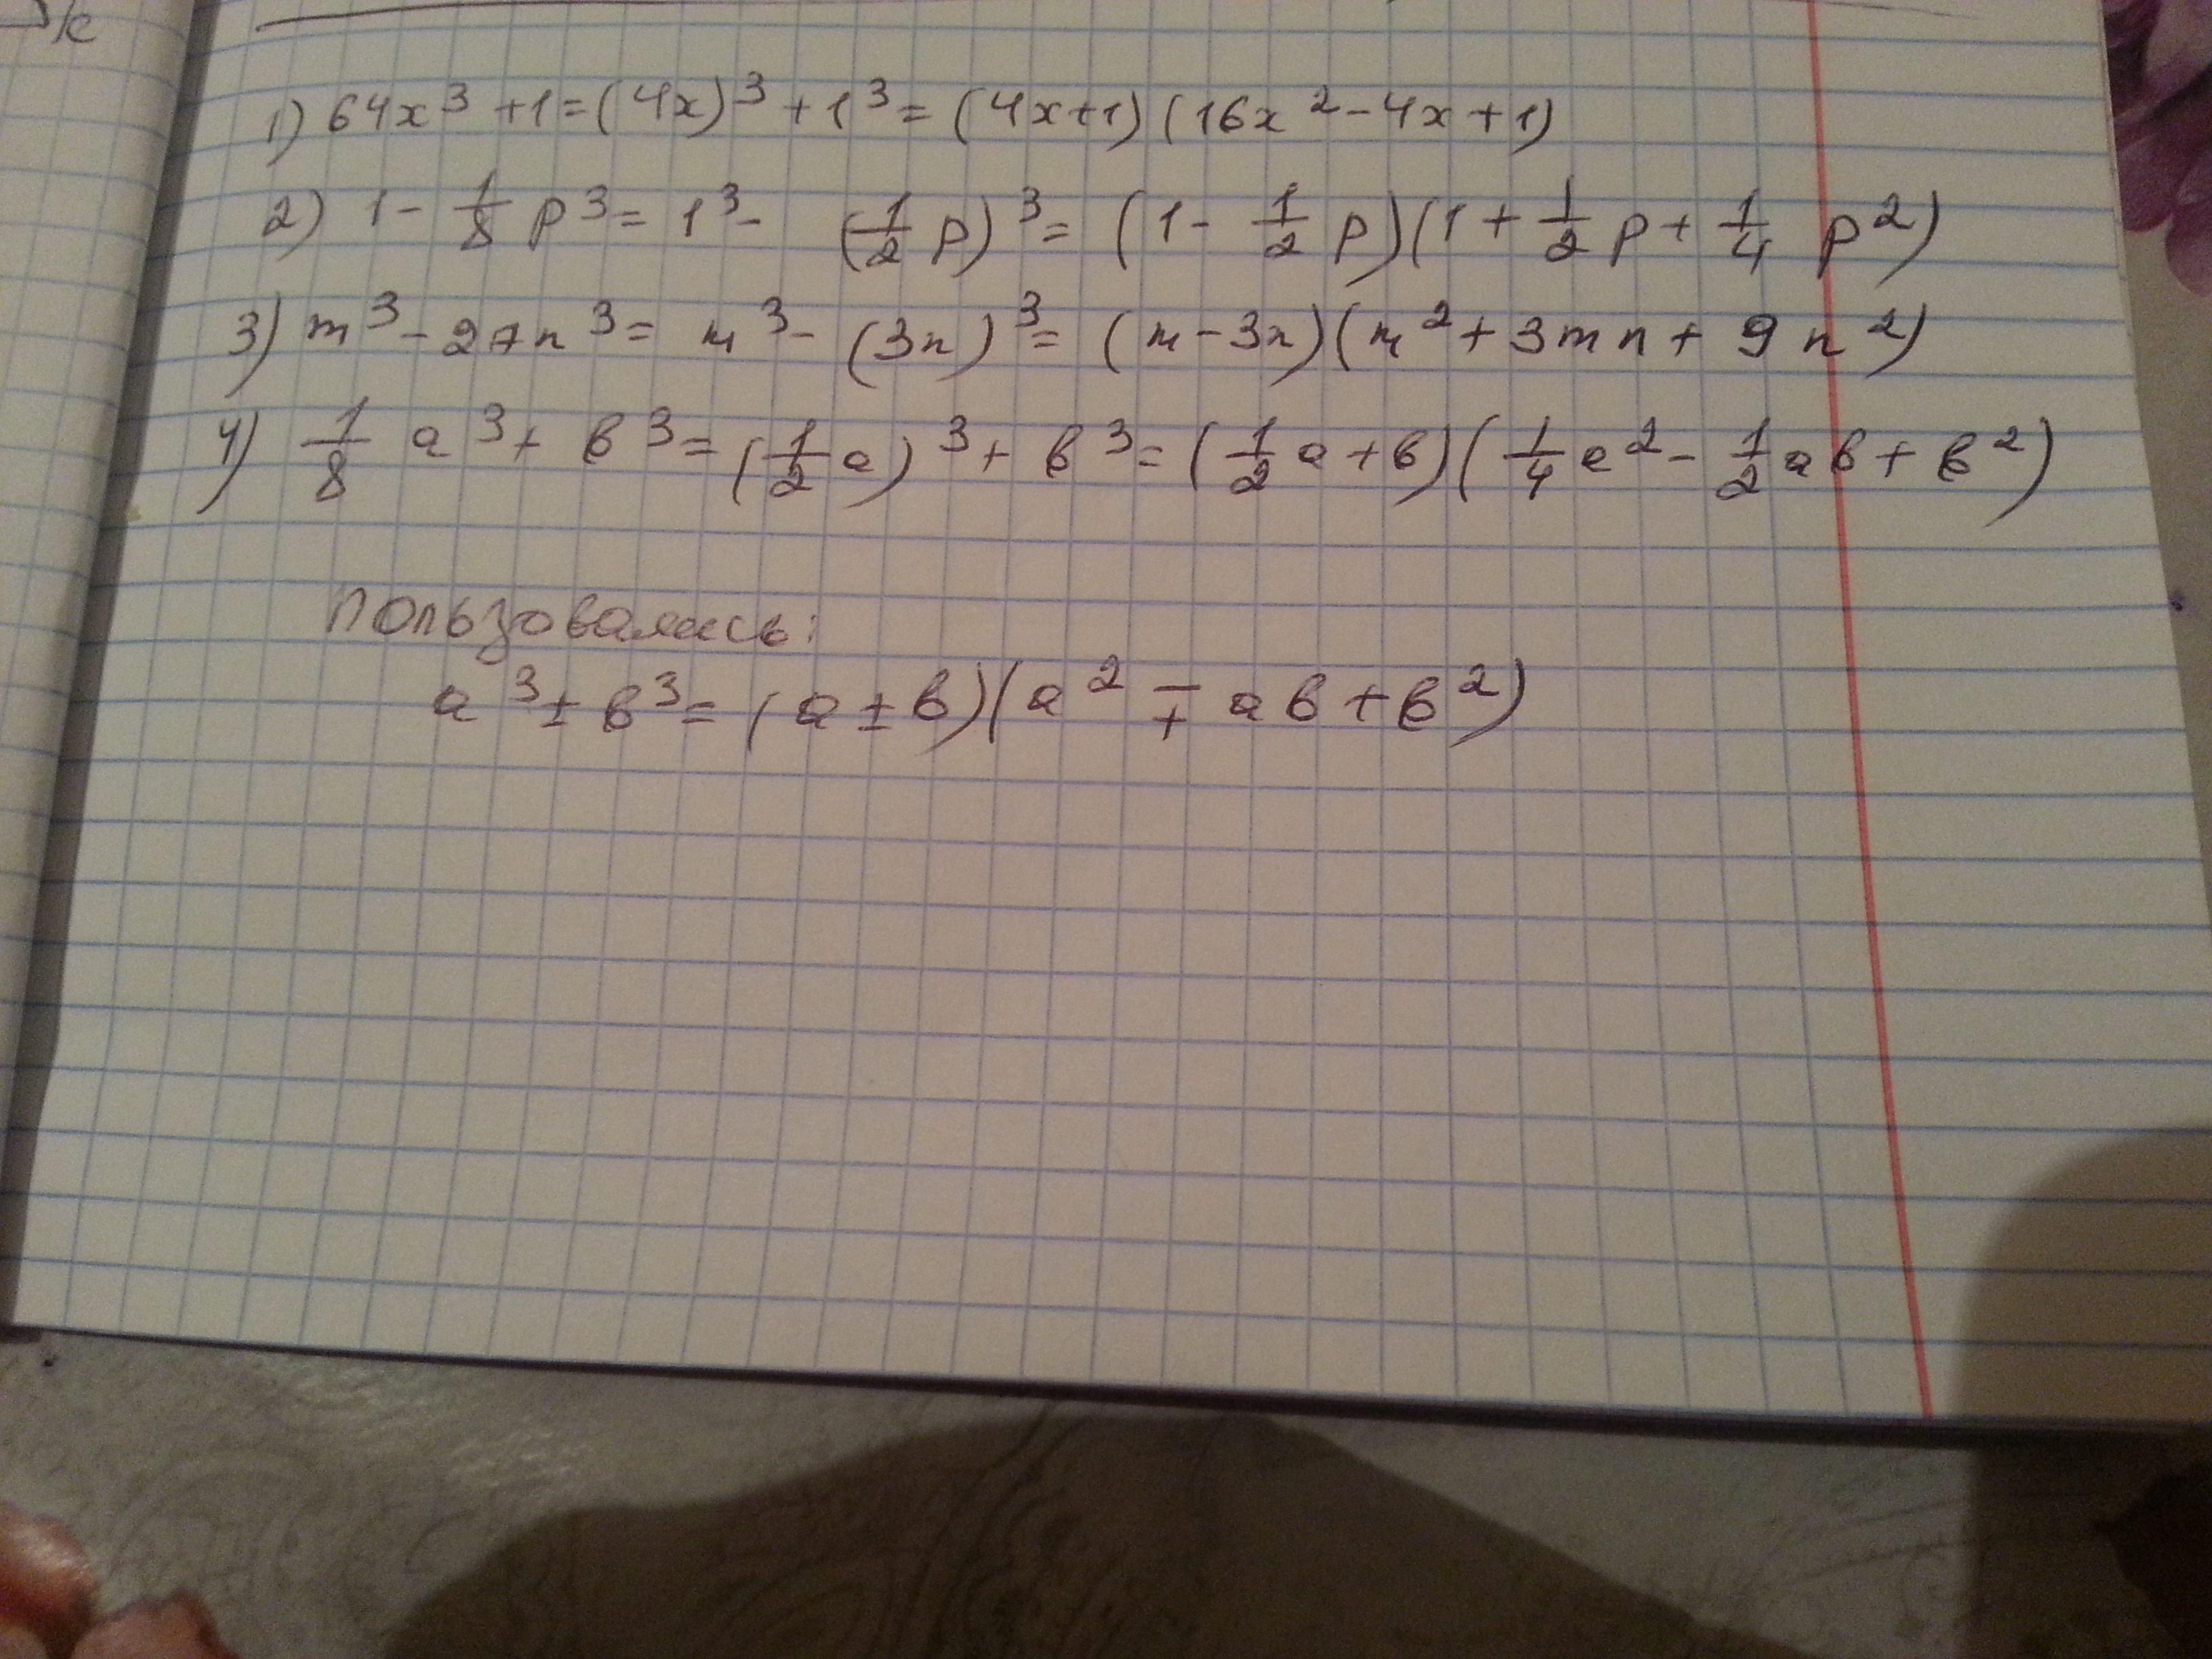 1) 64x³ + 1 = (4x)³ + 1³ = (4x+1) (16x² - 4x + 1)
2) 1 - 1/8 p³ = 1³ - (1/2 p)³ = (1 - 1/2 p)(1 + 1/2 p + 1/4 p²)
3) m³ - 27n³ = м³ - (3n)³ = (м - 3n)(м² + 3mn + 9n²)
4) 1/8 a³ + в³ = (1/2 a)³ + в³ = (1/2 a + в)(1/4 a² - 1/2 aв + в²)
Пользовалась:
a³ ± в³ = (a ± в)(a² ∓ aв + в²)